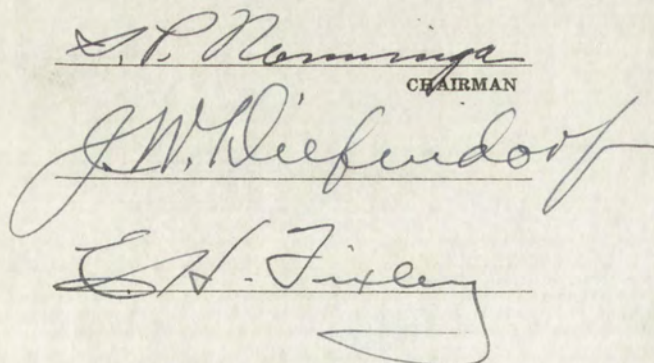 S. P. Nanninga
CHAIRMAN
J. W. Diefendorf
E. H. Fixley